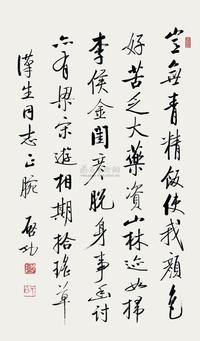 豈無青精飯使我顏色
好苦乏大藥資山林迹如掃
李侯金閨彥脫身事幽討
亦有梁宋遊相期拾瑤草
漢生同志正腕
啟功